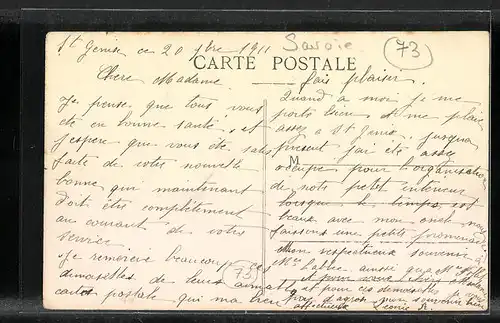 St Genix ce 20 9bre 1911
Savoie
73
CARTE POSTALE
Chère Madame
Je pense que tous vous
été en bonne santé, et
j'espère que vous ête satis
faite de votre nouvelle
bonne qui maintenant
doit être complètement
au courant de votre
service
Je remercie beaucoup ces
demoiselles de leurs aimables
cartes postale qui ma bien
fais plaisir.
Quand a moi je me
porte bien et me plaie
assez a St Genix. jusqua
present j'ai été assez
occupée pour l'organisation
de nots petit intérieur
lorsque le temps est
beaux avec mon oncle nous
faisons une petite promenade
Mon respectueux souvenir à
Mr l'abbé, aussi qu'a Mme
et pour vous chère Madame
et pour ces demoiselles
d'agréer mon souvenir bien
affectueux Léonie R.
M
73